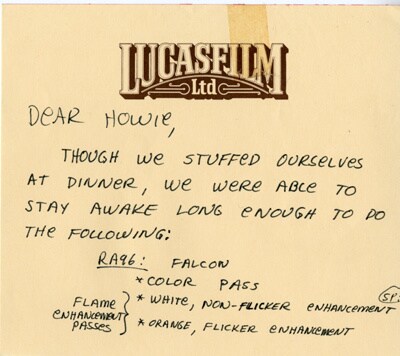 LUCASFILM
Ltd
DEAR HOWIE,
THOUGH WE STUFFED OURSELVES
AT DINNER, WE WERE ABLE TO
STAY AWAKE LONG ENOUGH TO DO
THE FOLLOWING:
RA96: FALCON
*COLOR PASS
SP.
FLAME ENHANCEMENT PASSES } * WHITE, NON-FLICKER ENHANCEMENT
*ORANGE, FLICKER ENHANCEMENT